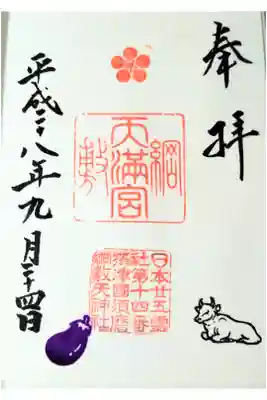 奉拝
綱
天満宮
敷
日本廿五霊
社第十四番
摂津國須磨
綱敷天神社
平成二十八年九月二十四日